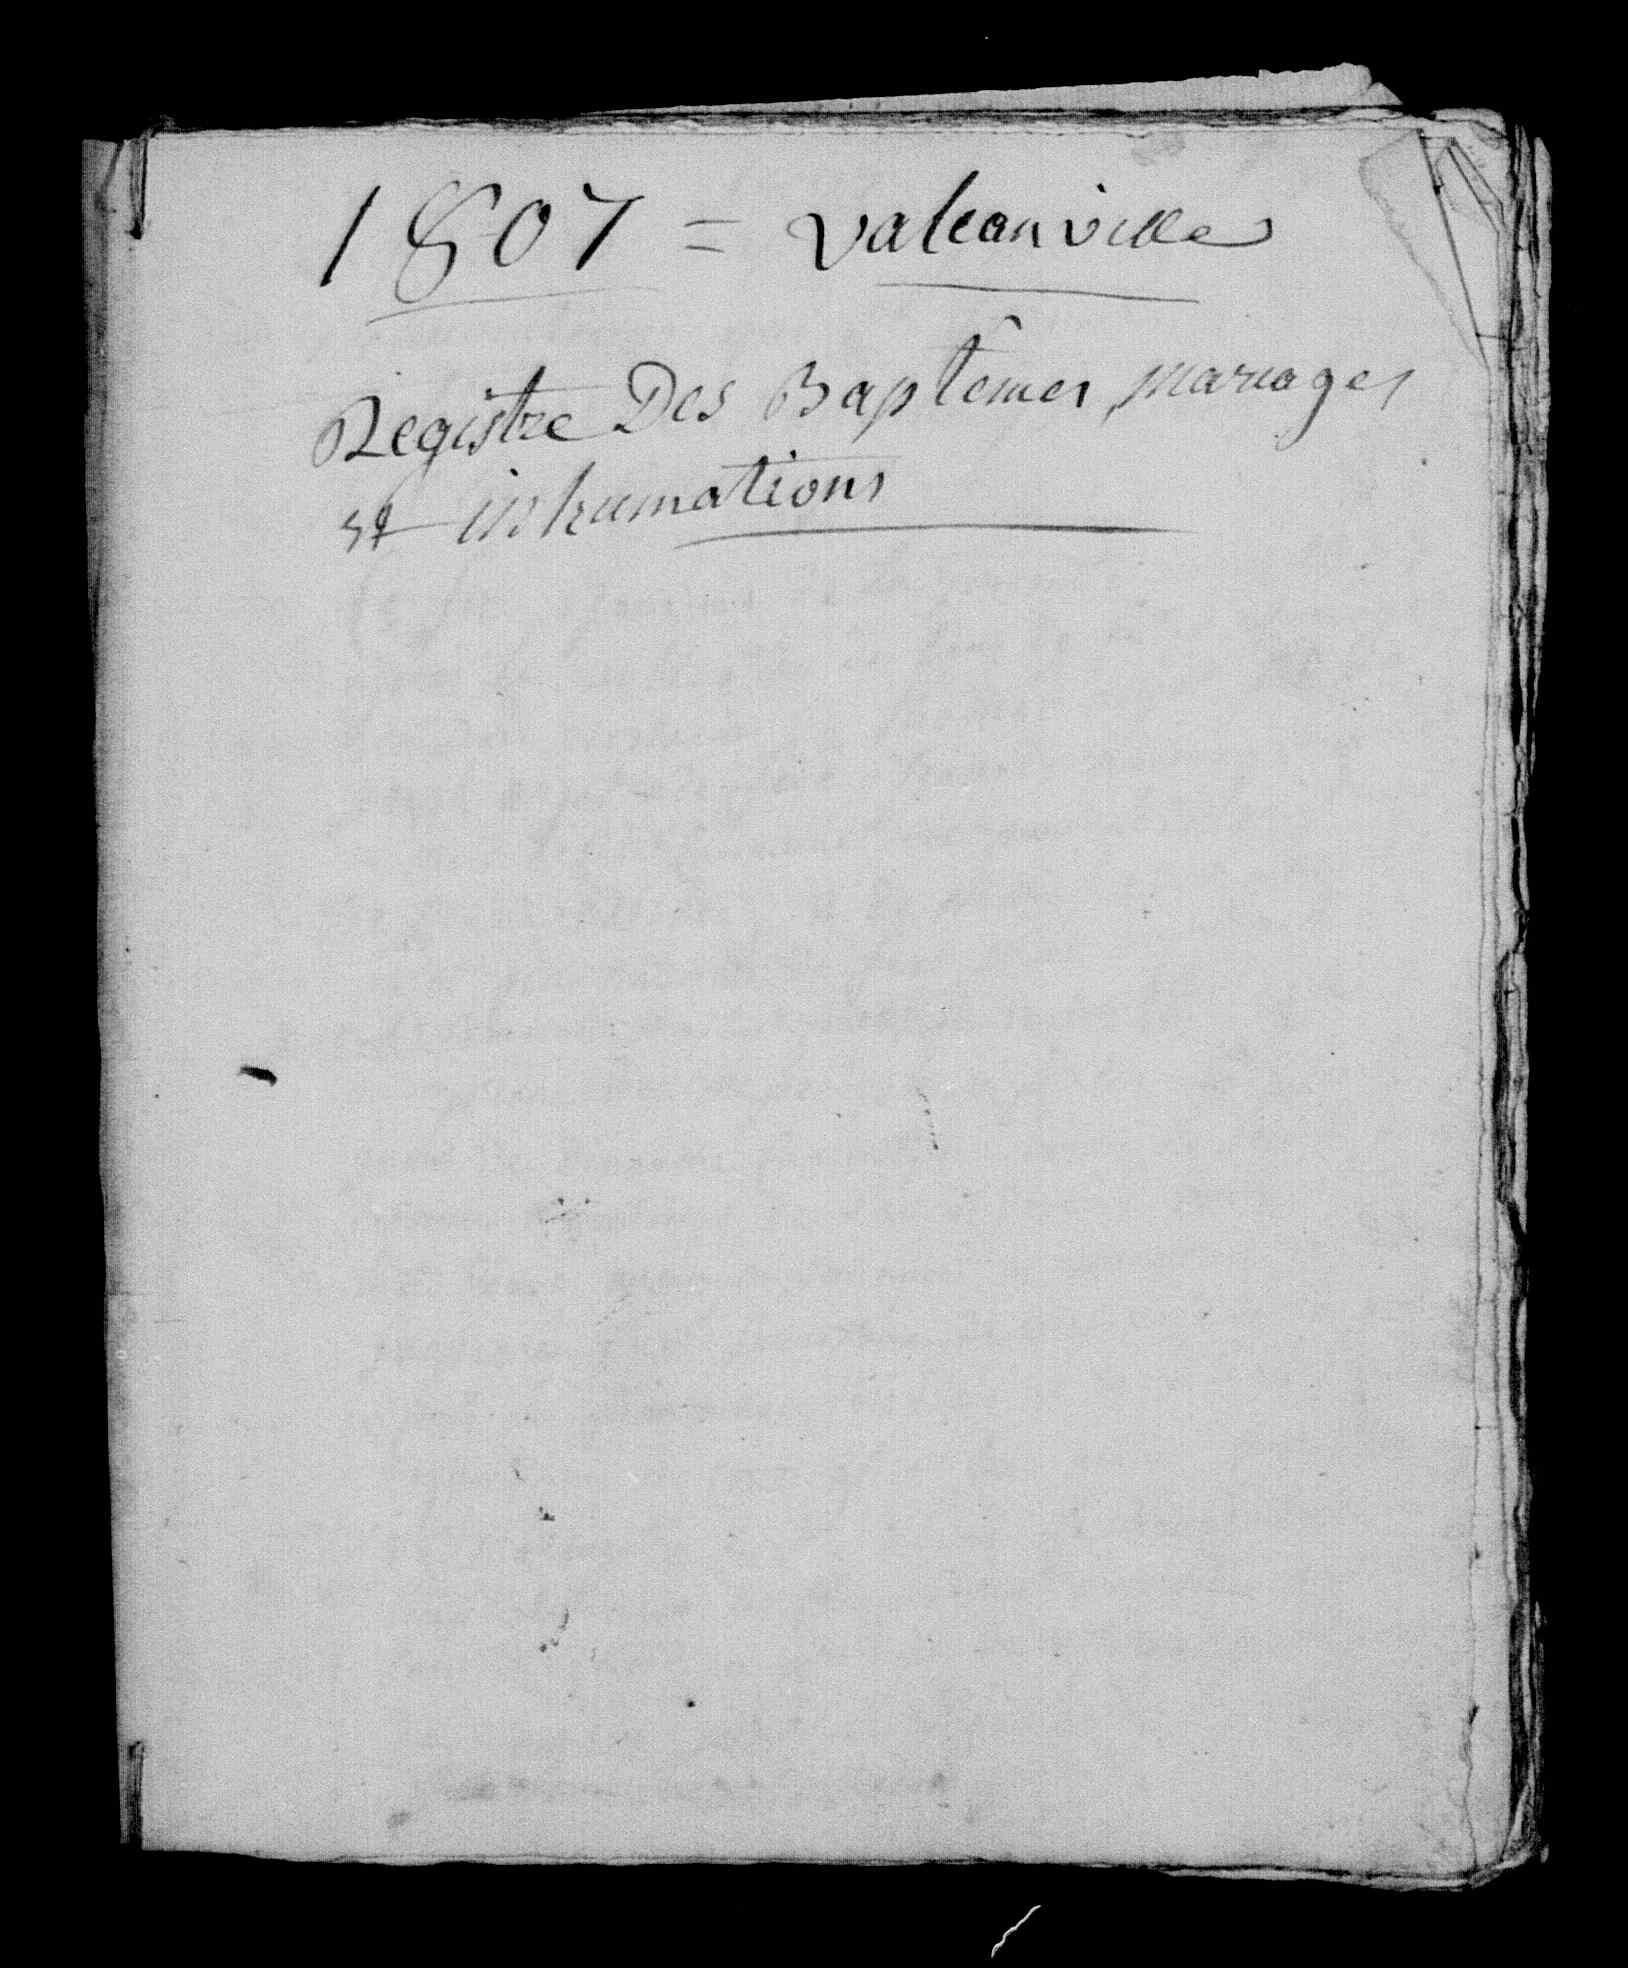 1807 = valcanville
Registre Des Baptemes, mariages
et inhumations